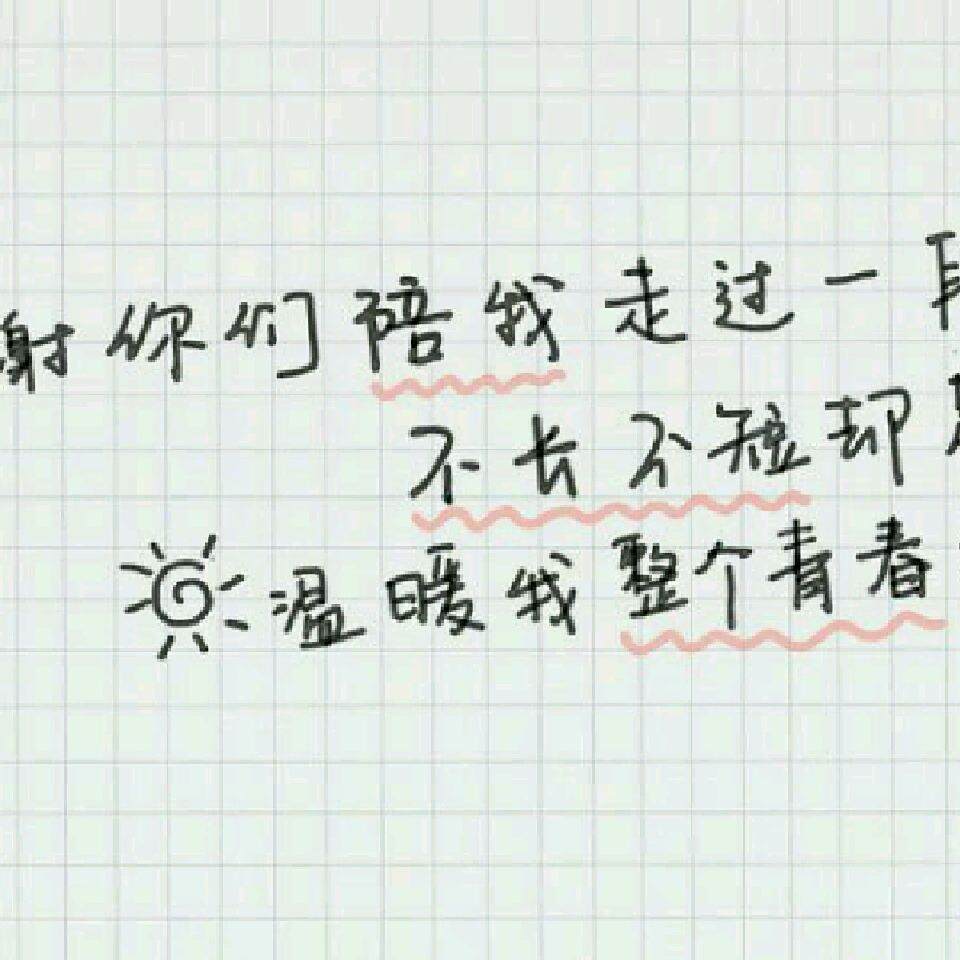 谢你们陪我走过一
不长不短却
温暖我整个青春